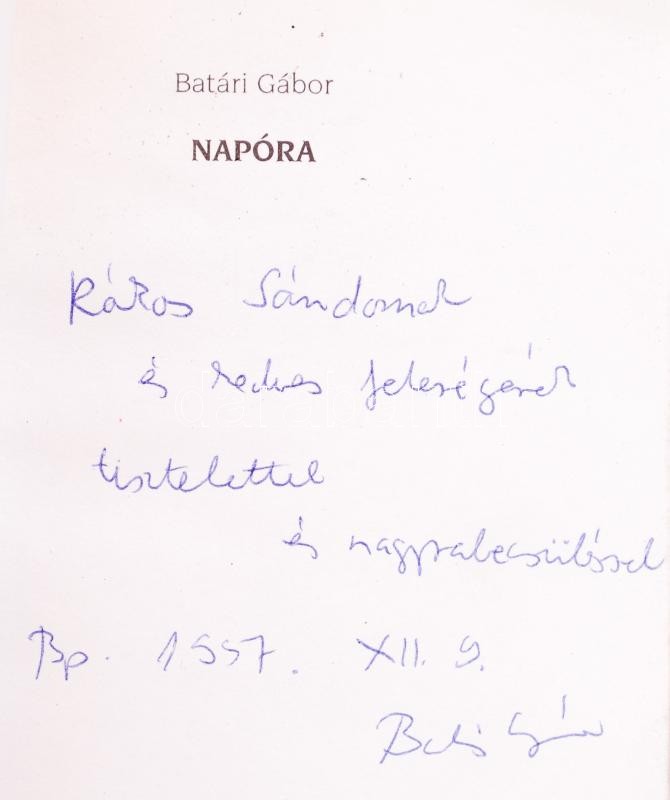 Batári Gábor
NAPÓRA
Rákos Sándornak
és kedves feleségének
tisztelettel
és nagyrabecsüléssel
Bp. 1997. XII. 9.